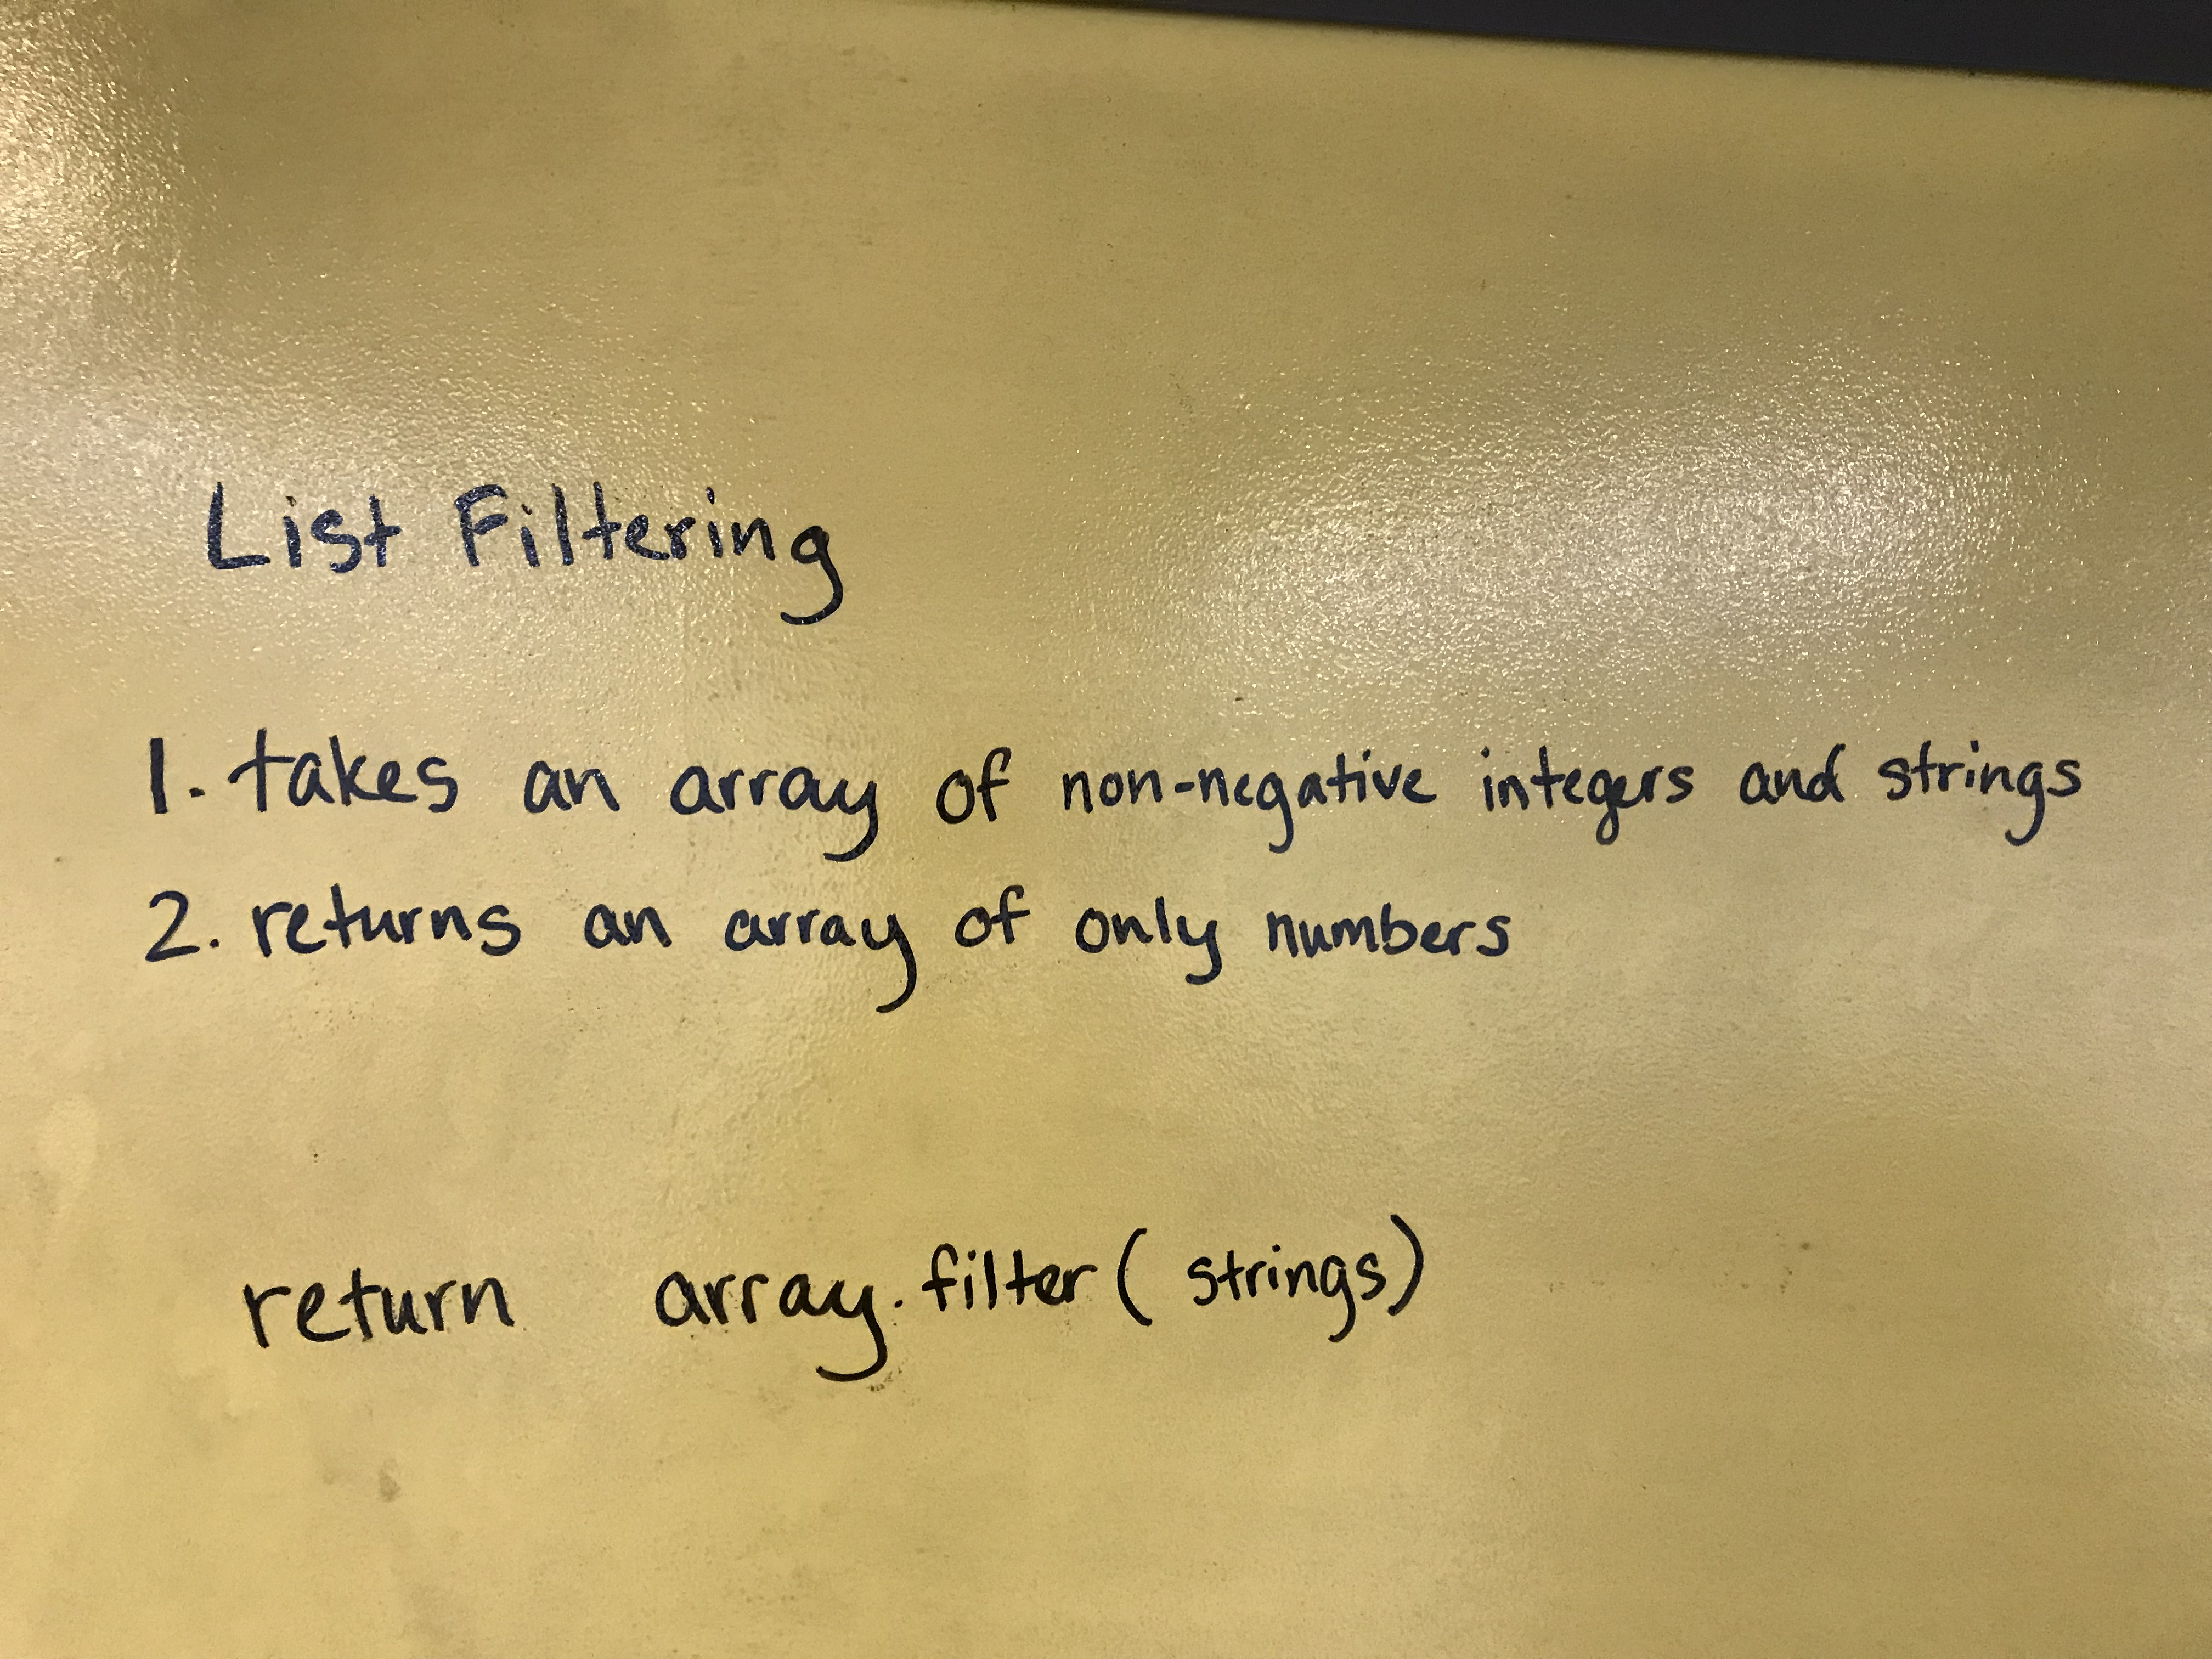 List Filtering
1. takes an array of non-negative integers and strings
2. returns an array of only numbers
return array.filter( strings)